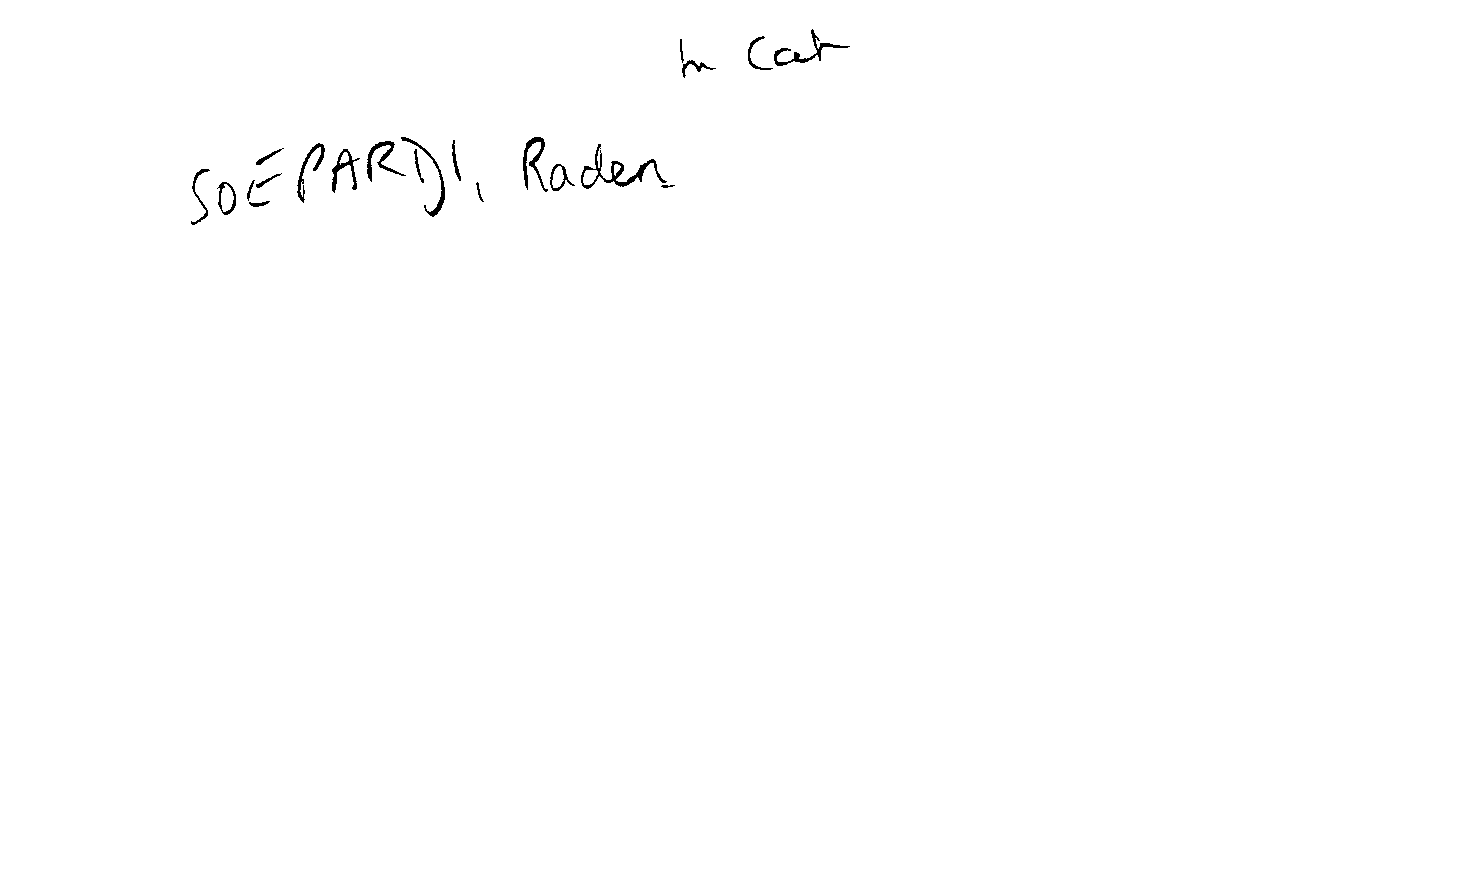 In Cat
SOEPARDI, Raden